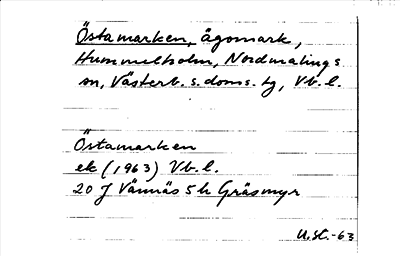 Östamarken, ägomark,
Hummelholm, Nordmalings
sn, Västerb. s. doms. tg, Vb. l.
Östamarken
ek (1963) Vb. l.
20 J Vännäs 5 h Gräsmyr
U.St.-63